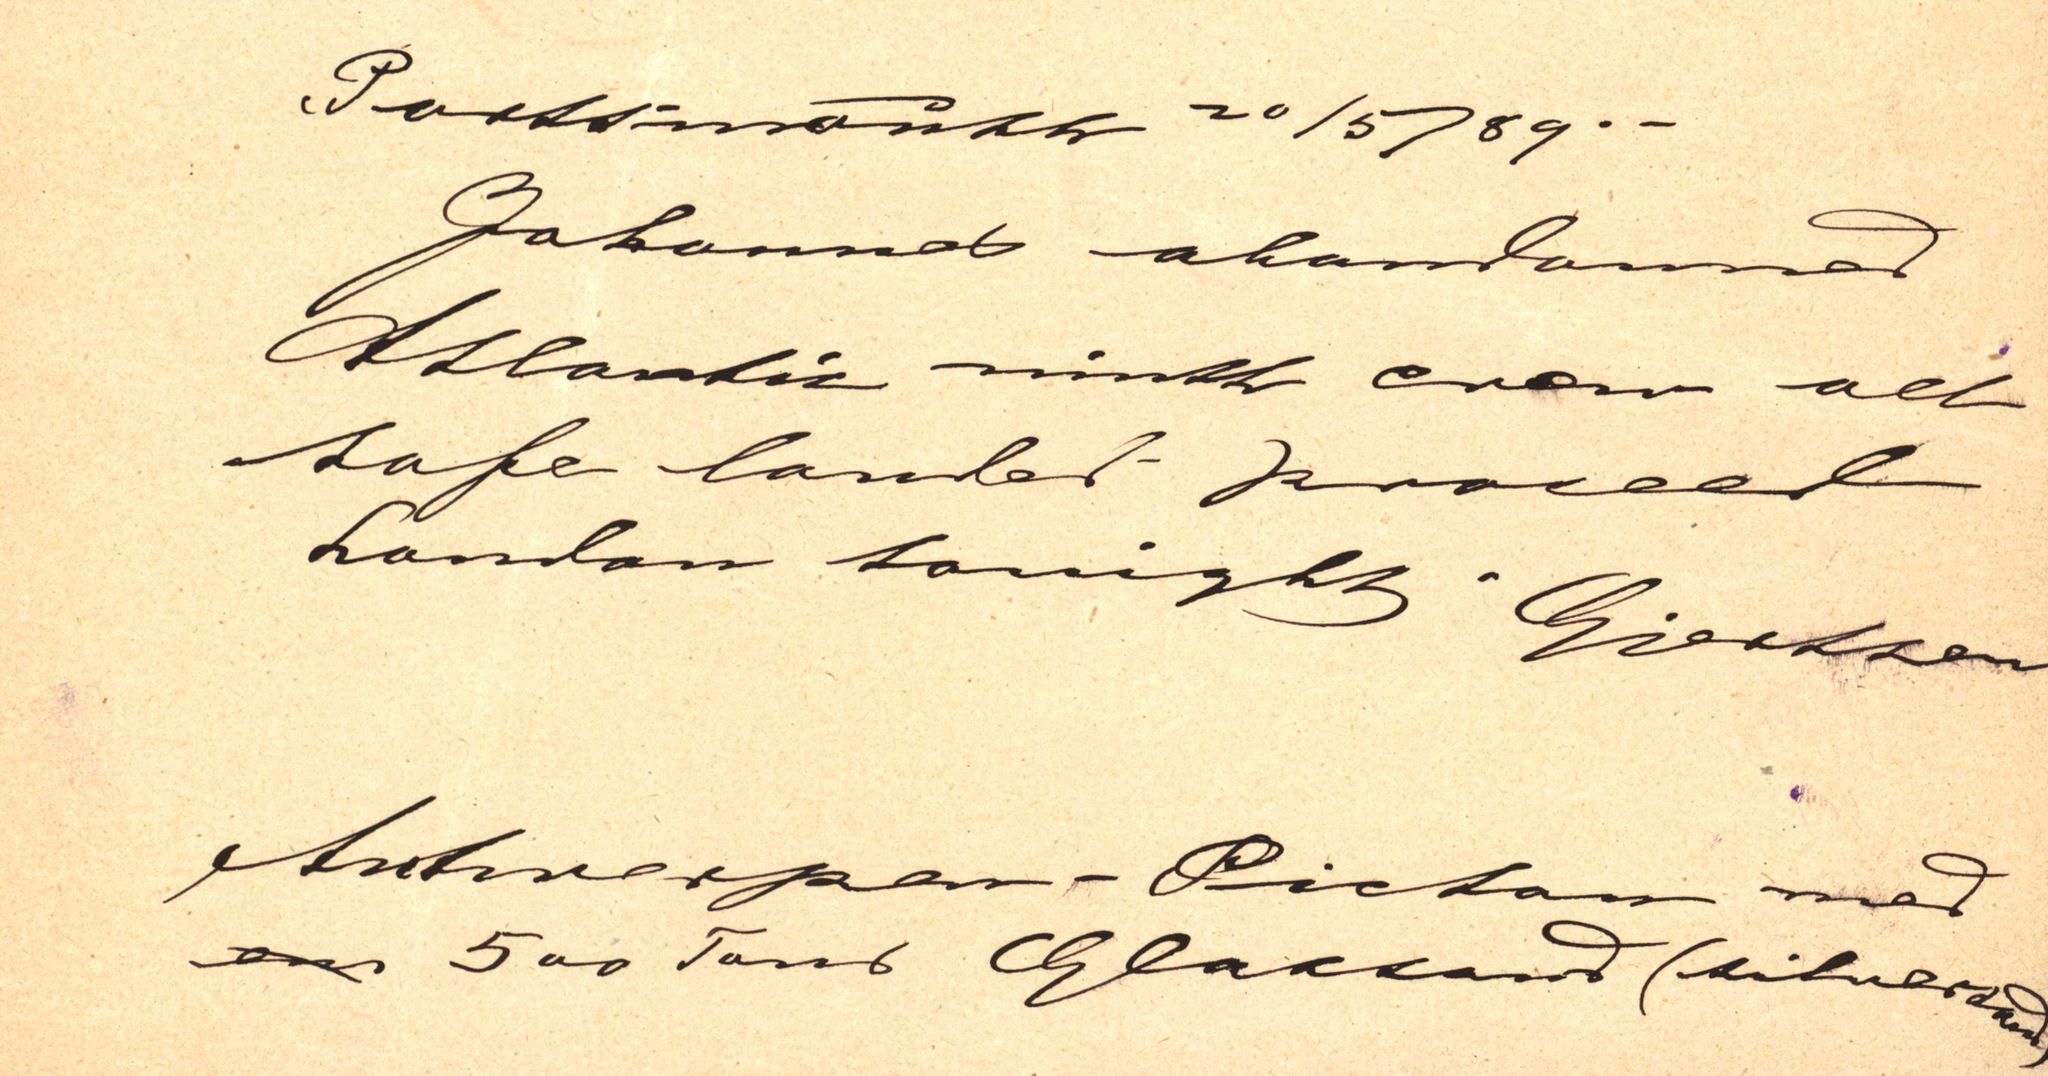 Portsmouth 20/5/89.-
Johannes abandonned
Atlantic ninth crew all
safe landed proceed
London tonight. Gjertsen
Antwerpen - Pictou med
500 Tons Glassand (silversand)